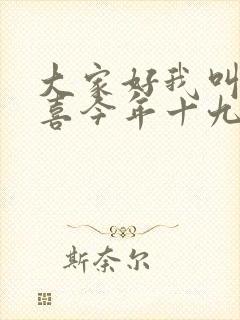 大家好我叫
喜今年十九
斯奈尔